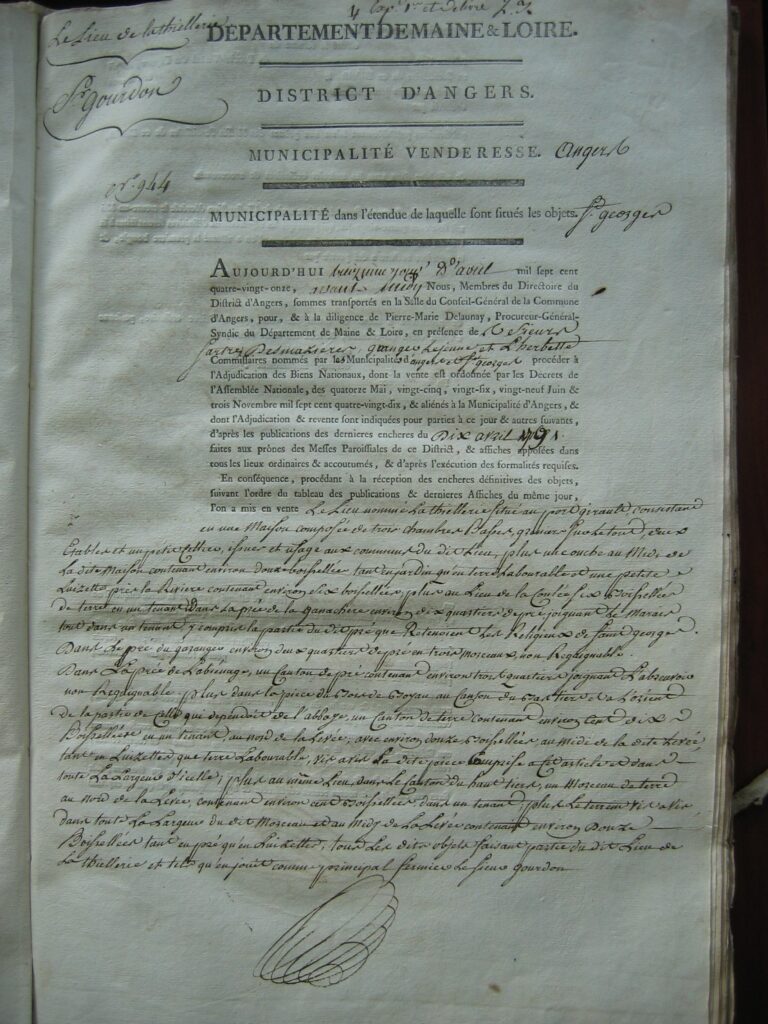 Le Lieu de la thiellerie
DÉPARTEMENT DE MAINE & LOIRE.
Sr. gourdon
DISTRICT D'ANGERS.
MUNICIPALITÉ VENDERESSE. Angers
No. 944
MUNICIPALITÉ dans l'étendue de laquelle sont situés les objets. St. georges
AUJOURD'HUI jour D'avril mil sept cent
quatre-vingt-onze, avant midy Nous, Membres du Directoire du
District d'Angers, sommes transportés en la Salle du Conseil-Général de la Commune
d'Angers, pour, & à la diligence de Pierre-Marie Delaunay, Procureur-Général-
Syndic du Département de Maine & Loire, en présence de Sieurs
Desmazieres, grange Lejeune et
Commissaires nommés par les Municipalités d'angers & St. georges procéder à
l'Adjudication des Biens Nationaux, dont la vente est ordonnée par les Décrets de
l'Assemblée Nationale, des quatorze Mai, vingt-cinq, vingt-six, vingt-neuf Juin &
trois Novembre mil sept cent quatre-vingt-dix, & aliénés à la Municipalité d'Angers, &
dont l'Adjudication & revente sont indiquées pour parties à ce jour & autres suivants,
d'après les publications des dernieres encheres du Dix avril 1791.
faites aux prônes des Messes Paroissiales de ce District, & affiches apposées dans
tous les lieux ordinaires & accoutumés, & d'après l'exécution des formalités requises.
En conséquence, procédant à la réception des encheres définitives des objets,
suivant l'ordre du tableau des publications & dernieres Affiches du même jour,
l'on a mis en vente Le Lieu nommé La thiellerie situé au port girault, consistant
en une Maison composée de trois chambres Basses, grenier sur le tout, deux
Etables et un petit Cellier, issues et usage aux communs du dit Lieu, plus une ouche au Midi de
La dite Maison contenant environ douze boisselées tant en jardin qu'en terre Labourable, et une petite
Luizette près la Riviere contenant environ six boisselées, plus au Lieu de la six Boisselées
de terre en un tenant, Dans La prée de la ganachere environ dix quartiers de pré joignant Le Marais
tout dans un tenant, y compris la partie du dit pré que Retenoient Les Religieux de saint george.
Dans Le pré du environ deux quartiers de pré en trois morceaux, non Regaignable.
Dans La prée de L'abrêmage, un Canton de pré contenant environ trois quartiers joignant L'abreuvoir
non Regaignable plus dans la piece du Bois de Boyau au Canton du et à L'orient
de la partie de celle qui dependoit de l'abbaye, un Canton de terre contenant environ cent dix
Boisselées en un tenant, au nord de la Levée, avec environ douze Boisselées au midi de la dite Levée
tant en Luizettes que terre Labourable, vis à vis La dite piece comprise à cet article et dans
toute La Largeur d'icelle; plus au même Lieu, dans Le Canton du haut tiers, un Morceau de terre
au nord de la Levée, contenant environ cent Boisselées dans un tenant, plus Le terrein vis à vis
dans toute La Largeur du dit Morceau et au Midy de La Levée contenant environ Douze
Boisselées tant en pré qu'en Luizettes, tous Les dits objets faisant partie du dit Lieu de
La thiellerie et tels qu'en jouit comme principal fermier Le Sieur Gourdon